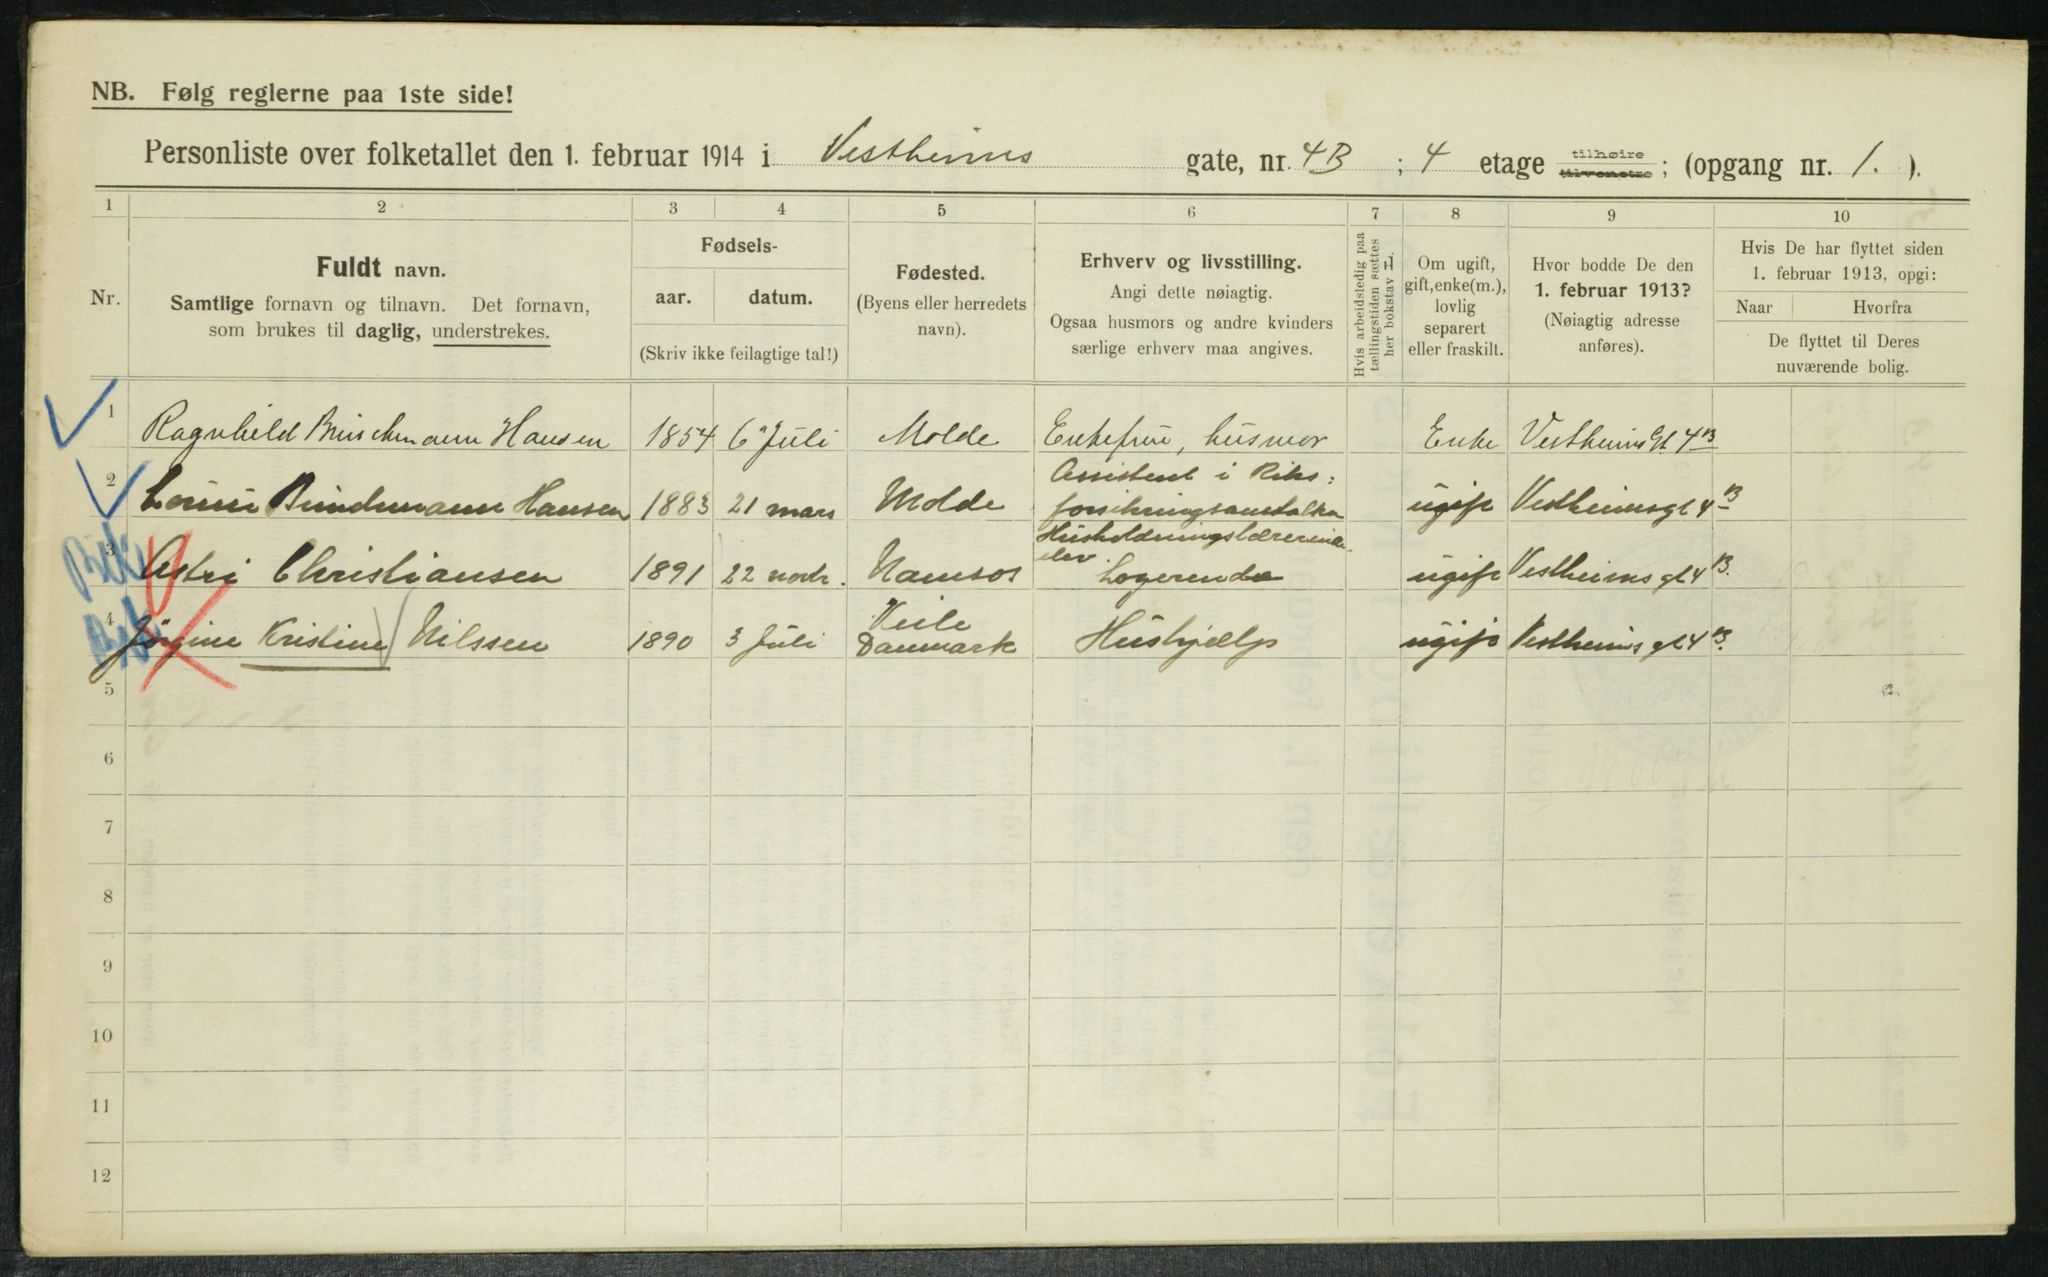 NB. Følg reglerne paa 1ste side!
Personliste over folketallet den 1. februar 1914 i Vestheims gate, nr. 4B ; 4 etage tilhøire tilvenstre ; (opgang nr. 1. ).
1 2 3 4 5 6 7 8 9 10
Nr.
Fuldt navn.
Samtlige fornavn og tilnavn. Det fornavn,
som brukes til daglig, understrekes.
Fødsels-
aar. datum.
(Skriv ikke feilagtige tal!)
Fødested.
(Byens eller herredets
navn).
Erhverv og livsstilling.
Angi dette nøiagtig.
Ogsaa husmors og andre kvinders
særlige erhverv maa angives.
Hvis arbeidsledig paa
tællingstiden sættes
her bokstav L
Om ugift,
gift, enke(m.),
lovlig
separert
eller fraskilt.
Hvor bodde De den
1. februar 1913?
(Nøiagtig adresse
anføres).
Hvis De har flyttet siden
1. februar 1913, opgi:
Naar Hvorfra
De flyttet til Deres
nuværende bolig.
1 Ragnhild Hansen 1854 6 Juli Molde Enkefrue, husmor Enke Vestheims Gt 4B
2 Hansen 1883 21 mars Molde Assistent i Riks: ugift Vestheimsgt 4B
forsikringsanstalten
3 Astri Christiansen 1891 22 novbr. Namsos Husholdningslærerinde- ugift Vestheims gt 4B.
elev. Logerende
4 Jørgine Kristine Nilssen 1890 3 Juli Veile Danmark Hushjælp ugift Vestheims gt 4B.
5
6
7
8
9
10
11
12